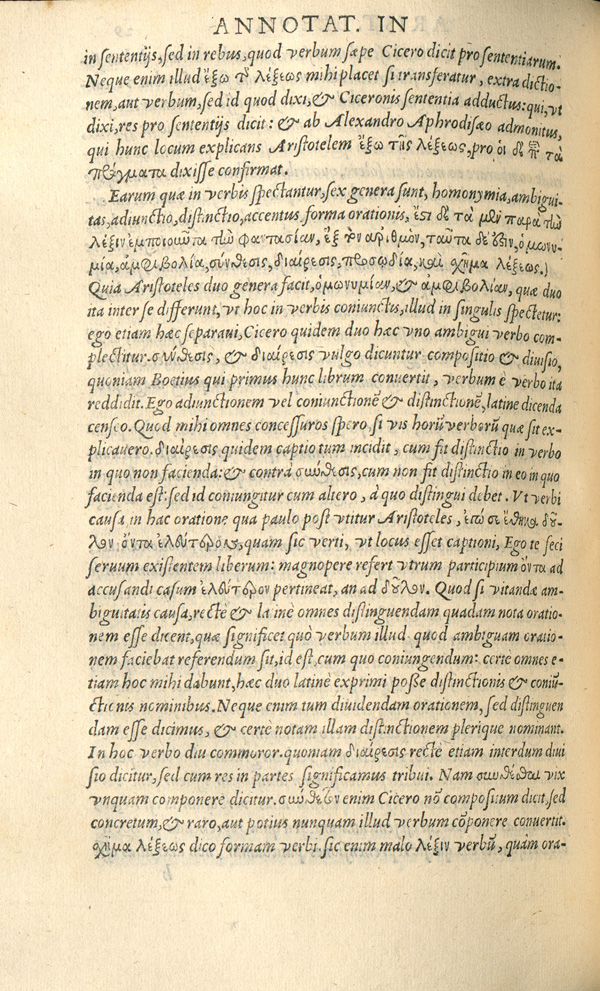 ANNOTAT. IN
in sententijs, sed in rebus, quod verbum sæpe Cicero dicit pro sententiarum.
Neque enim illud ἔξω τ λέξεως mihi placet si transferatur, extra dictio-
nem, aut verbum, sed id quod dixi, & Ciceronis sententia adductus: qui, vt
dixi, res pro sententijs dicit: & ab Alexandro Aphrodisæo admonitus,
qui hunc locum explicans Aristotelem ἔξω τῆς λέξεως, pro οἱ δὲ τὰ
πράγματα dixisse confirmat.
Earum quæ in verbis spectantur, sex genera sunt, homonymia, ambigui-
tas, adiunctio, distinctio, accentus, forma orationis, ἔστι δὲ τὰ μὲν παρὰ τὴν
λέξιν ἐμποιοῦντα τὴν φαντασίαν, ἓξ τὸν ἀριθμὸν, ταῦτα δέ ἐστιν, ὁμωνυ-
μία, ἀμφιβολία, σύνθεσις, διαίρεσις, προσῳδία, καὶ σχῆμα λέξεως.)
Quia Aristoteles duo genera facit, ὁμωνυμίαν, & ἀμφιβολίαν, quæ duo
ita inter se differunt, vt hoc in verbis coniunctis, illud in singulis spectetur:
ego etiam hæc separaui, Cicero quidem duo hæc vno ambigui verbo com-
plectitur. σύνθεσις, & διαίρεσις vulgo dicuntur compositio & diuisio,
quoniam Boetius qui primus hunc librum conuertit, verbum è verbo ita
reddidit. Ego adiunctionem vel coniunctionē & distinctionē, latine dicenda
censeo. Quod mihi omnes concessuros spero, si vis horū verborū quæ sit ex-
plicauero. διαίρεσις quidem captio tum incidit, cum fit distinctio in verbo
in quo non facienda: & contrà σύνθεσις, cum non fit distinctio in eo in quo
facienda est: sed id coniungitur cum altero, à quo distingui debet. Vt verbi
causa in hac oratione qua paulo post vtitur Aristoteles, ἐγώ σε ἔθηκα δοῦ-
λον ὄντα ἐλεύθερον, quam sic verti, vt locus esset captioni, Ego te feci
seruum existentem liberum: magnopere refert vtrum participium ὄντα ad
accusandi casum ἐλεύθερον pertineat, an ad δοῦλον. Quod si vitandæ am-
biguitatis causa, rectè & latinè omnes distinguendam quadam nota oratio-
nem esse dicent, quæ significet quò verbum illud quod ambiguam oratio-
nem faciebat referendum sit, id est, cum quo coniungendum: certè omnes e-
tiam hoc mihi dabunt, hæc duo latinè exprimi posse distinctionis & coniū-
ctionis nominibus. Neque enim tum diuidendam orationem, sed distinguen
dam esse dicimus, & certè notam illam distinctionem plerique nominant.
In hoc verbo diu commoror. quoniam διαίρεσις rectè etiam interdum diui
sio dicitur, sed cum res in partes significamus tribui. Nam συνθεῖναι vix
vnquam componere dicitur. σύνθετον enim Cicero nō compositum dicit, sed
concretum, & raro, aut potius nunquam illud verbum cōponere conuertit.
σχῆμα λέξεως dico formam verbi. sic enim malo λέξιν verbū, quàm ora-